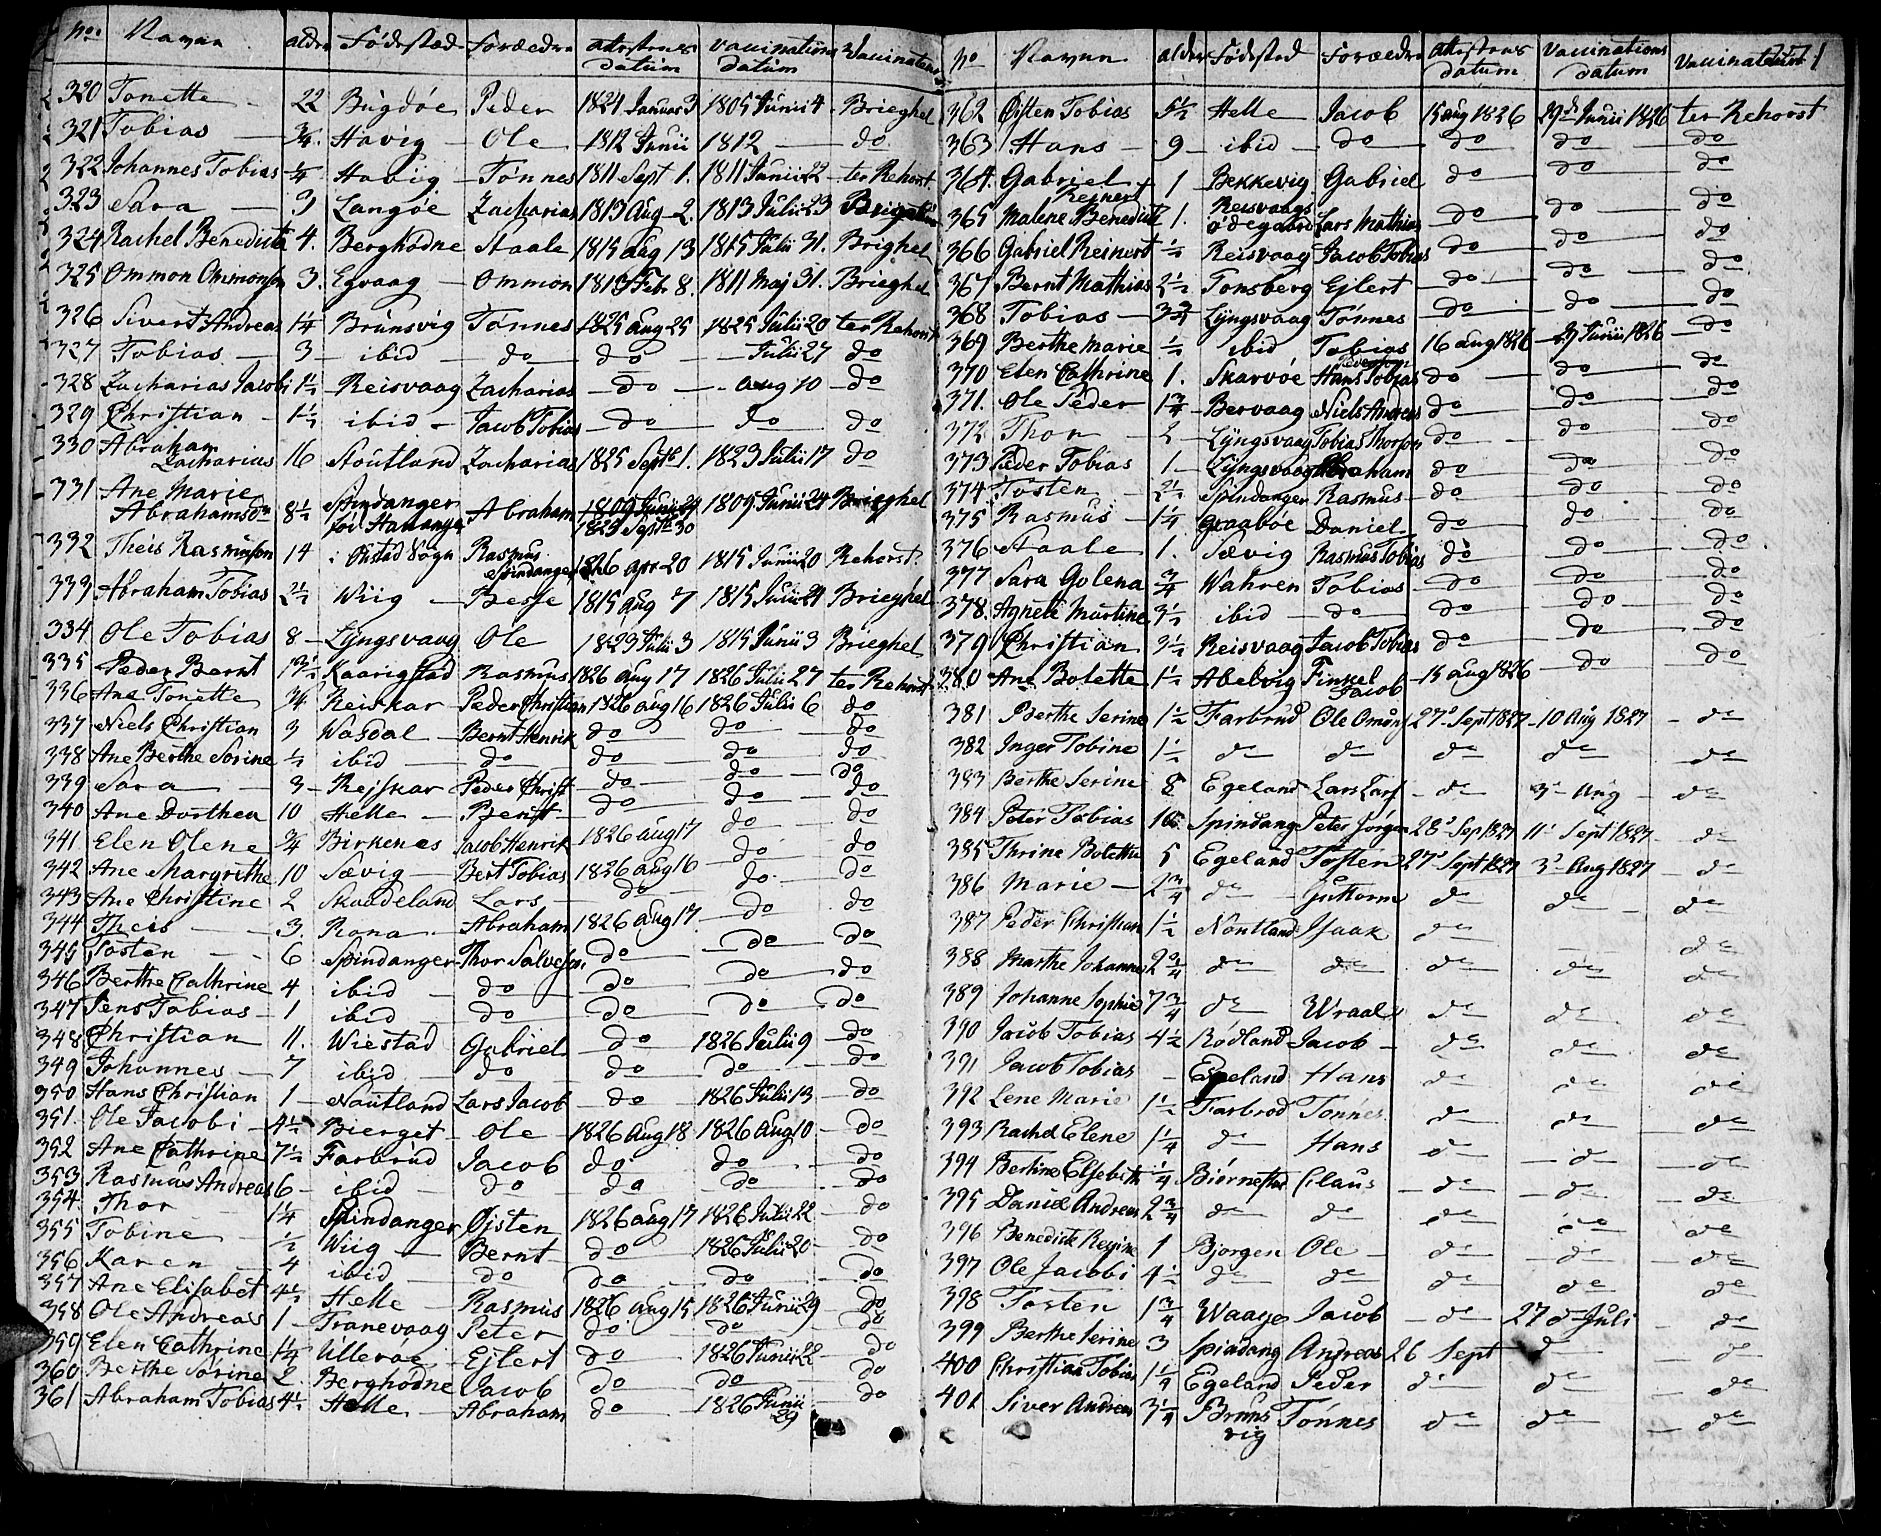 No. Navnn alder Fødestæd Forældre attestens datum vaccinations datum Vaccinateur
320 Tonette - 22 Bugdøe Peder 1824 Januar 3 1805 Junii 4 - Brieghel
321 Tobias - 3/4. Havig - Ole - 1812 Junii 1812 - do
322 Johannes Tobias 1/4 Havig - Tønnes 1811 Sept 1. 1811 Junii 22 - ter Rehorst.
323 Sara - 3 Langøe Zacharias 1813 Aug 2. 1813 Julii 23
324 Rachel Benedicta 4. Berghødne Staale 1815 aug 13 1815 Julii 31. Brighel
325 Ommon Ommonson 3. Egvaag - Ommon 1813 Febr 8. 1811 Maj 31. Brieghel
326 Sivert Andreas 1 1/4 Brunsvig Tønnes 1825 aug 25 1825 Julii 20 ter Rehorst
327 Tobias - 3 - ibid - do do - Julii 27 do
328 Zacharias Jacobi 1 1/2 Reisvaag Zacharias - do - aug 10 - do
329 Christian - 1 1/2 ibid - Jacob Tobias - do - do do
330 Abraham Zacharias 16 Stoutland Zacharias 1825 Septb 1. 1823 Julii 17 do
331 Ane Marie Abrahamsdr 8 1/2 Spindanger Abraham 1809 Junii 24 1809 Junii 24 Brieghel
1823 Septb 30
332 Theis Rasmusson 14 i Qvstad Sogn Rasmus Spindanger 1826 apr 20 1815 Junii 20 Rehorst.
333 Abraham Tobias 2 1/2 Wiig - Besse 1815 Aug 7 1815 Junii 24 Brieghel
334 Ole Tobias 8 - Lyngsvaag Ole 1823 Julii 3 1815 Junii 3 Brieghel
335 Peder Bernt 13 1/2 Kaarigstad Rasmus 1826 aug 17 1826 Julii 27 ter Rehorst
336 Ane Tonette 3/4 Reiskar Peder Christian 1826 aug 16 1826 Julii 6 do
337 Niels Christian 3 Wasdal - Bernt Henrik do do do
338 Ane Berthe Serine 1/2 ibid - do do do do
339 Sara - 3 - Rejskar Peder Christ - do - do - do
340 Ane Dorthea 10 Helle - Bent - do do - do
341 Elen Olene 3/4 Birkenes Jacob Henrik 1826 aug 17 do - do
342 Ane Margrethe 10 Sævig - Bert Tobias 1826 aug 16 do do
343 Ane Christine 2 Skaadeland Lars - do do - do
344 Theis - 3. Rona - Abraham 1826 aug 17. - do do
345 Tosten - 6 Spindanger Thor Salveson. do - do - do
346 Berthe Cathrine 4 ibid - do - do - do do
347 Jens Tobias - 1 ibid - do - do do do
348 Christian 11. Wiestad Gabriel - do 1826 Julii 9 - do
349 Johannes - 7 ibid - do - do do - do
350 Hans Christian 1 - Nautland Lars Jacob - do 1826 Julii 13 - do
351. Ole Jacobi - 4 1/2 Bierget - Ole - 1826 Aug 18 1826 Aug 10 - do
352 Ane Cathrine 7 1/2 Farbrud Jacob do do - do
353 Rasmus Andreas 6 - ibid - do do do - do
354. Thor - 1 1/4 Spindanger Ojsten 1826 aug 17 1826 Julii 22 - do
355 Tobine - 1/2 Wiig - Bernt - do 1826 Julii 20 - do
356 Karen - 4 ibid - do do do do
357 Ane Elisabet 4 1/2 Helle - Rasmus 1826 aug 15 1826 Junii 29 - do
358 Ole Andreas 1 - Tranevaag Peter do do do
359 Elen Cathrine 1 1/4 Ulleroe - Ejlert - do 1826 Junii 22 - do
360 Berthe Sørine 2. Berghødne Jacob do do - do
361 Abraham Tobias 4 1/2 Helle Abraham do 1826 Junii 29 do
No Navnn alder Fødestæd Forældre attestens datum Vaccinations datum Vaccinateur
362 Øisten Tobias 5 1/2 Helle Jacob 15 aug 1826 29d Junii 1826 ter Rehorst
363 Hans - 9 - ibid - do do do do
364. Gabriel 1 Bekkevig Gabriel do - do do
365 Malene Benedict 1. Reisvaags Lars Mathias - do - do do
366 Gabriel Reinert 1/2 Reisvaag Jacob Tobias - do do do
367 Bernt Mathias 2 1/2 Tonsberg Ejlert - do - do do
368 Tobias - Lyngsvaag Tønnes - do - do - do
369 Berthe Marie 1/2 ibid Tobias 16 aug 1826 - 29 Junii 1826 - do
370 Elen Cathrine 1. Skarvøe Hans Tobias do - do do
371. Ole Peder 1 3/4 Bervaag Niels Andreas do - do do
372 Thor - 2 - Lyngsvaag Tobias Thorson do do do
373 Peder Tobias 1 - Lyngsvaag Abraham do do do
374 Tosten - 2 1/2 Spindanger Rasmus - do - do - do
375 Rasmus - 1 1/4 Graaboe Daniel do - do - do
376 Staale 1. Sævig Rasmus Tobias do do do
377 Sara Golena 3/4 Wahren Tobias - do do do
378. Agnete Martine 3 1/2 ibid - do - do - do do
379 Christian 3 1/2 Reisvaag Jacob Tobias do do do
380 Ane Bolette 1 1/2 Abelvig Finkel Jacob - 15 aug 1826 - do do
381 Berthe Serine 1 1/2 Farbrud Ole Omun 27d Sept 1827 - 10 Aug 1827 - do
382 Inger Tobine 1 1/2 do do do do - do
383 Berthe Serine 8 Egeland Lars Lars - do 3d Aug - do
384 Peter Tobias 16 Spindang Peter Jørgen 28d Sep 1827 11d Sept 1827 - do
385 Thrine Bolette 5 Egeland Tosten 27d Sept 1827 3d Aug 1827 - do
386 Marie - 2 3/4 do - Guttorm do do - do
387 Peder Christian 1 1/2 Nontland Isaak do - do
388 Marthe Johanne 2 3/4 do do do do do
389 Johanne Sophie 7 3/4 do Wraal do do do
390 Jacob Tobias 4 1/2 Rødland Jacob - do do do
391 Jacob Tobias - Egeland Hans do do do
392 Lene Marie 1 1/2 Farbrod Tønnes do do do
393 Rachel Elene 1 1/4 do Hans do do - do
394 Bertine Elsebeth 1/4 Biørnestad Claus - do - do - do
395 Daniel Andreas 2 3/4 do do do do do
396 Benedicte Regine 1 Bjorgen Ole - do - do - do
397 Ole Jacobi 4 1/2 do do do do do
398 Tosten 1 3/4 Waage Jacob - do - 27 d Juli - do
399 Berthe Serine 3 Spindang Andreas 26 Sept do - do
400 Christian Tobias 1 1/4 Egeland Peder do do - do
401 Siver Andreas 3 1/4 Bruns vig Tønnes do do - do